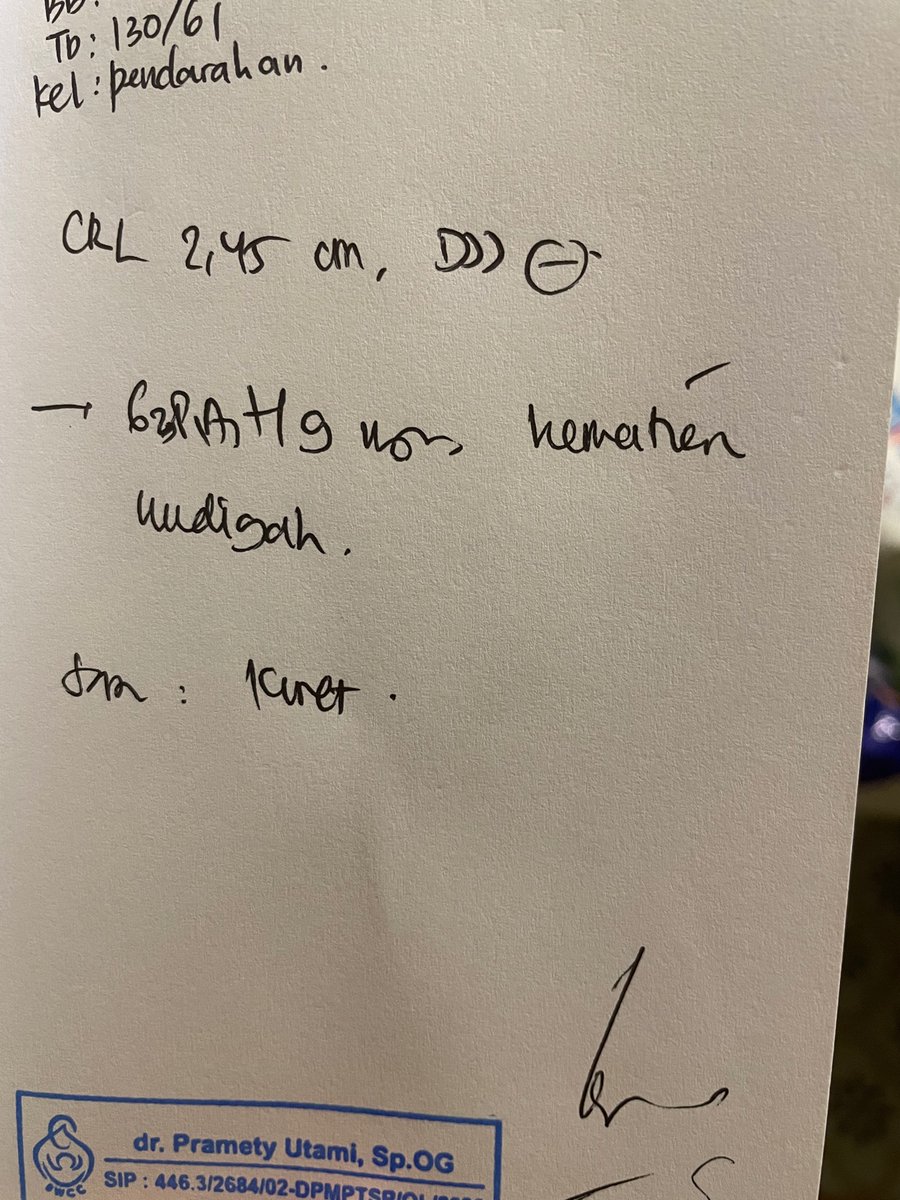 BB:
TD: 130/61
kel: pendarahan.
CRL 2,45 cm, DJJ ⊖
→ G3P1A1 H 9 kematian
mudigah.
: Kuret.
dr. Pramety Utami, Sp.OG
SIP : 446.3/2684/02-DPMPTSP/OL/
BWCC